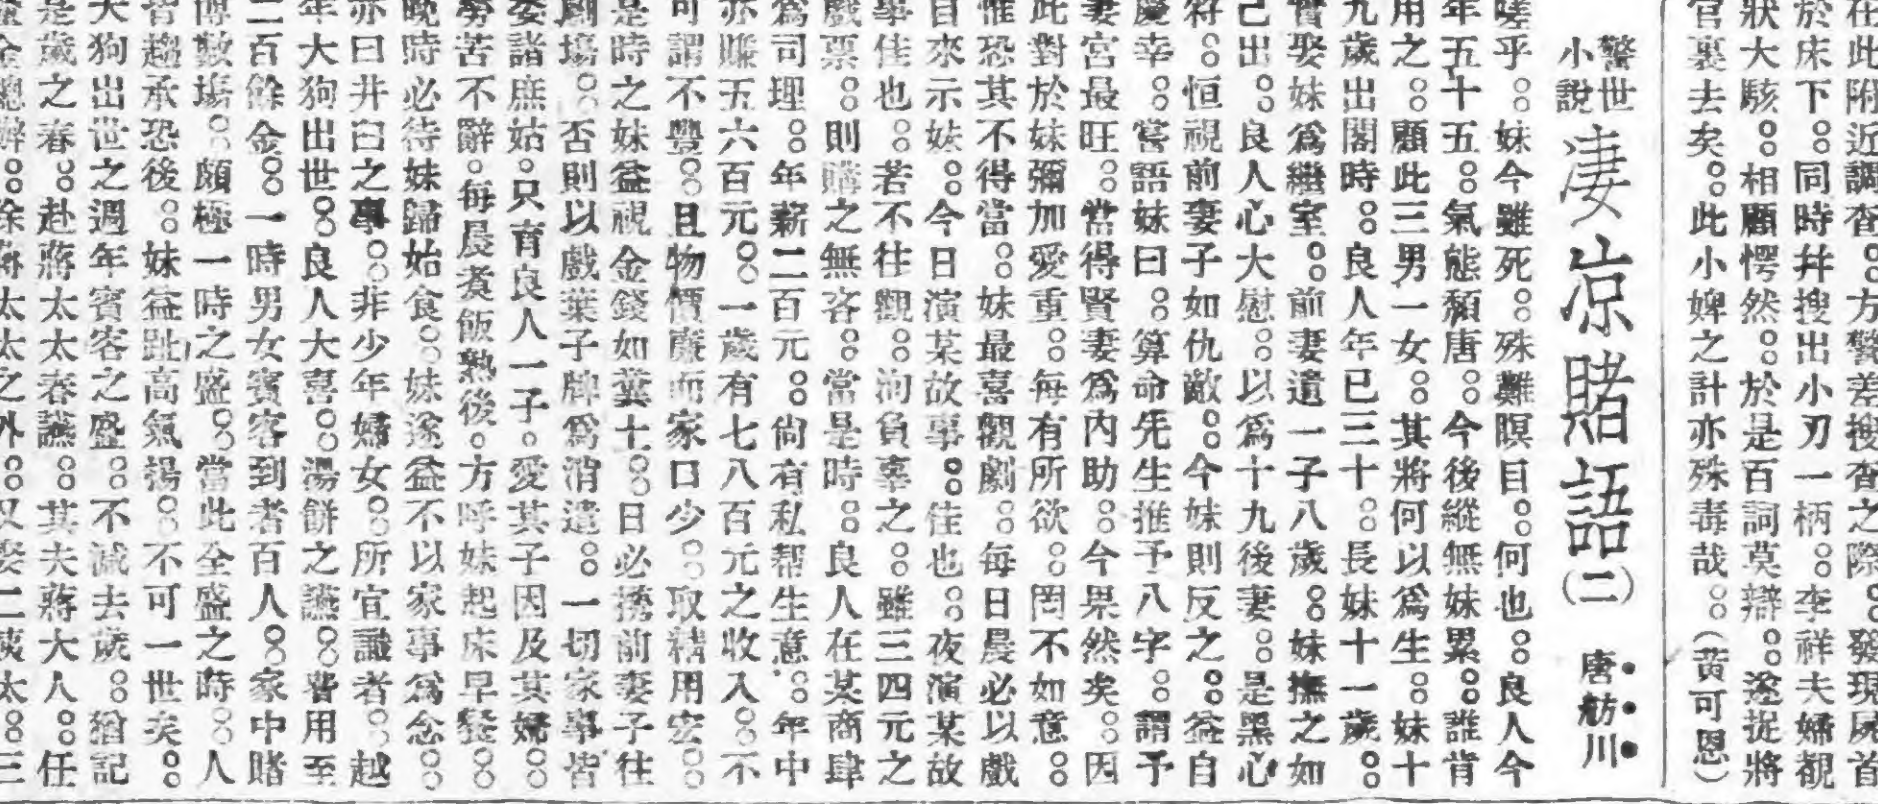 在此附近調查。方警差搜查之際。發現屍首
於床下。同時幷搜出小刃一柄。李祥夫婦覩
狀大駭。相顧愕然。於是百詞莫辯。遂捉將
官裏去矣。此小婢之計亦殊毒哉。(黃可恩)
警世小說 凄凉賭語(二) 唐舫川
嗟乎。妹今雖死。殊難瞑目。何也。良人今
年五十五。氣態頹唐。今後縱無妹累。誰肯
用之。顧此三男一女。其將何以為生。妹十
九歲出閣時。良人年已三十。長妹十一歲。
實娶妹為繼室。前妻遺一子八歲。妹撫之如
己出。良人心大慰。以為十九後妻。是黑心
符。恒視前妻子如仇敵。今妹則反之。益自
慶幸。嘗語妹曰。算命先生推予八字。謂予
妻宮最旺。當得賢妻為內助。今果然矣。因
此對於妹彌加愛重。每有所欲。罔不如意。
惟恐其不得當。妹最喜觀劇。每日晨必以戲
目來示妹。今日演某故事。佳也。夜演某故
事佳也。若不往觀。洵負辜之。雖三四元之
戲票。則購之無吝。當是時。良人在某商肆
為司理。年薪二百元。尙有私帮生意。年中
亦賺五六百元。一歲有七八百元之收入。不
可謂不豐。且物價廉而家口少。取精用宏。
是時之妹益視金錢如糞土。日必携前妻子往
劇塲。否則以戲葉子牌為消遣。一切家事皆
委諸庶姑。只育良人一子。愛其子因及其婦。
勞苦不辭。每晨煑飯熟後。方呼妹起床早餐。
晚時必待妹歸始食。妹遂益不以家事為念。
亦曰井臼之事。非少年婦女。所宜識者。越
年大狗出世。良人大喜。湯餅之讌。費用至
二百餘金。一時男女賓客到者百人。家中賭
博數塲。頗極一時之盛。當此全盛之時。人
皆趨承恐後。妹益趾高氣揚。不可一世矣。
大狗出世之週年賓客之盛。不減去歲。猶記
是歲之春。赴蔣太太春讌。其夫蔣大人。任
金總辦。除蔣太太之外。又娶二姨太。三